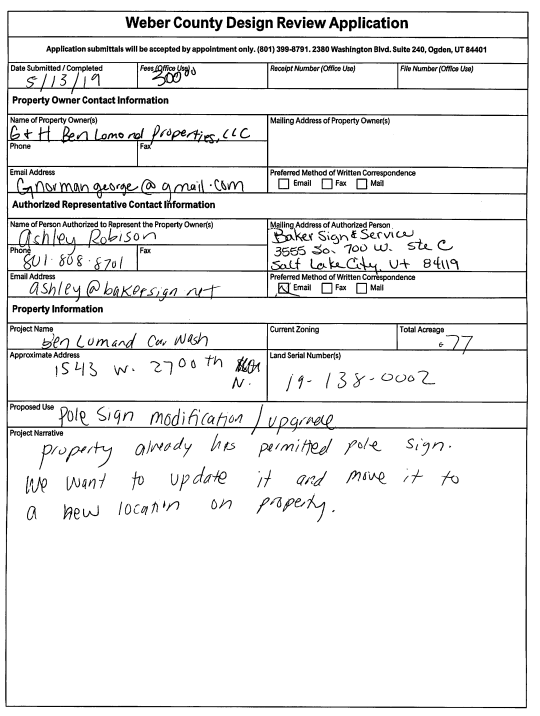 Weber County Design Review Application
Application submittals will be accepted by appointment only. (801) 399-8791. 2380 Washington Blvd. Suite 240, Ogden, UT 84401
Date Submitted / Completed
5/13/19
Fees (Office Use)
300.00
Receipt Number (Office Use)
File Number (Office Use)
Property Owner Contact Information
Name of Property Owner(s)
G&H Ben Lomond Properties, LLC
Mailing Address of Property Owner(s)
Phone
Fax
Email Address
Gnormangeorge@gmail.com
Preferred Method of Written Correspondence
Email Fax Mail
Authorized Representative Contact Information
Name of Person Authorized to Represent the Property Owner(s)
Ashley Robison
Phone
801-808-8701
Fax
Mailing Address of Authorized Person
Baker Sign & Service
3555 So. 700 W. Ste C
Salt Lake City, Ut 84119
Email Address
ashley@bakersign.net
Preferred Method of Written Correspondence
Email Fax Mail
Property Information
Project Name
Ben Lomand Car Wash
Current Zoning
Total Acreage
.77
Approximate Address
1543 W. 2700th
N.
Land Serial Number(s)
19-138-0002
Proposed Use
Pole Sign modification/upgrade
Project Narrative
property already has permitted pole sign.
We want to update it and move it to
a new location on property.